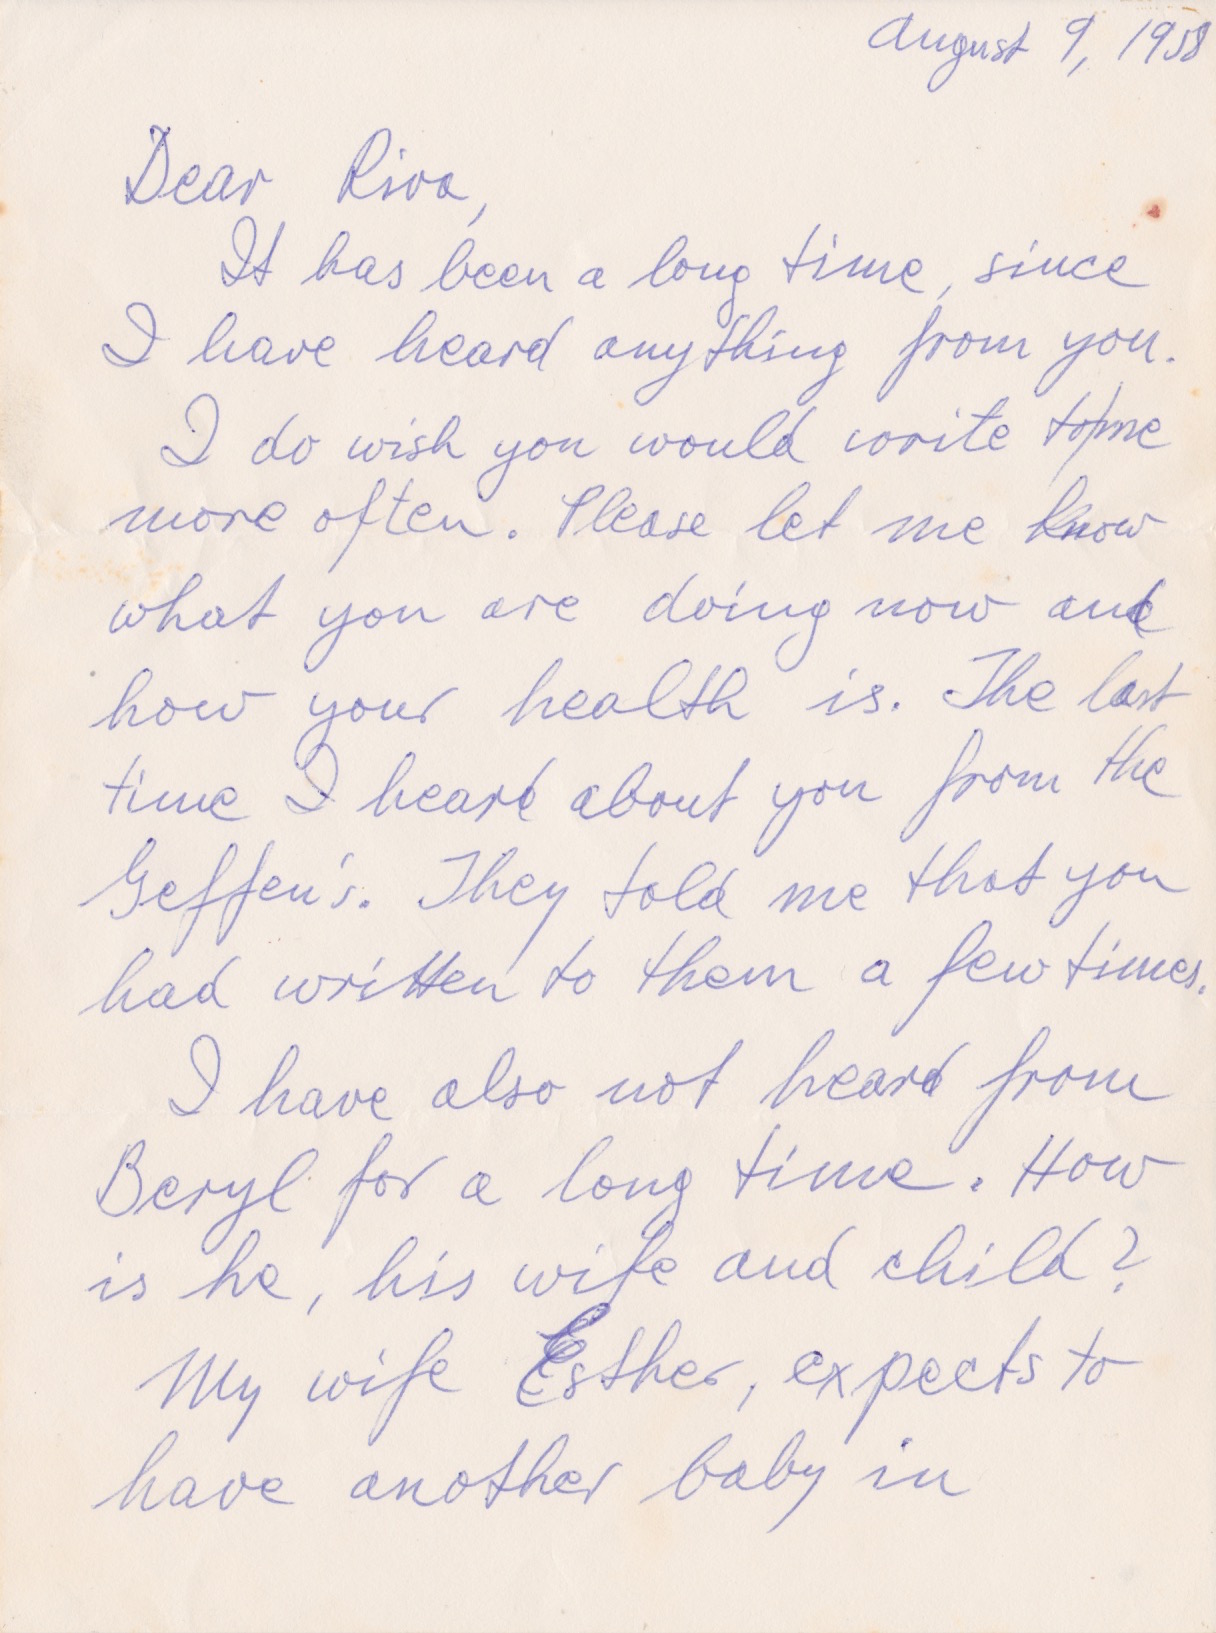 August 9, 1958
Dear Riva,
It has been a long time, since
I have heard anything from you.
I do wish you would write to me
more often. Please let me know
what you are doing now and
how your health is. The last
time I heard about you from the
Geffen's. They told me that you
had written to them a few times.
I have also not heard from
Beryl for a long time. How
is he, his wife and child?
My wife Esther, expects to
have another baby in